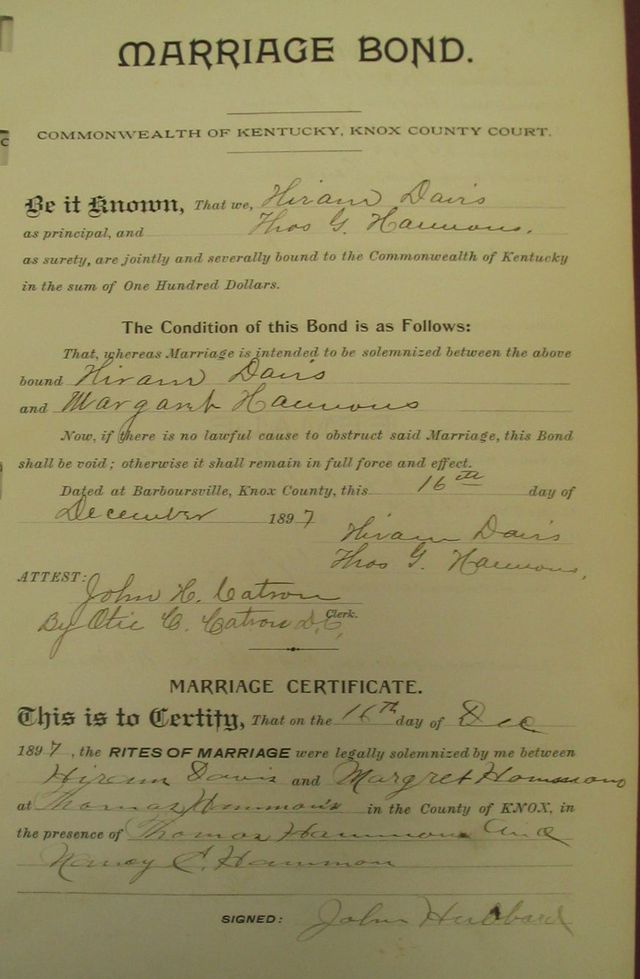 MARRIAGE BOND.
COMMONWEALTH OF KENTUCKY, KNOX COUNTY COURT.
Be it Known, That we, Hiram Davis
as principal, and Thos G. Hammons.
as surety, are jointly and severally bound to the Commonwealth of Kentucky
in the sum of One Hundred Dollars.
The Condition of this Bond is as Follows:
That, whereas Marriage is intended to be solemnized between the above
bound Hiram Davis
and Margaret Hammons
Now, if there is no lawful cause to obstruct said Marriage, this Bond
shall be void; otherwise it shall remain in full force and effect.
Dated at Barboursville, Knox County, this 16th day of
December 1897
Hiram Davis
Thos G. Hammons.
ATTEST:
John H. Catron
Clerk.
By Otie C. Catron D.C.
MARRIAGE CERTIFICATE.
This is to Certify, That on the 16th day of Dec
1897, the RITES OF MARRIAGE were legally solemnized by me between
Hiram Davis and Margret Hammons
at Thomas Hammon's in the County of KNOX, in
the presence of Thomas Hammon and
Nancy E. Hammon
SIGNED: John Hubbard